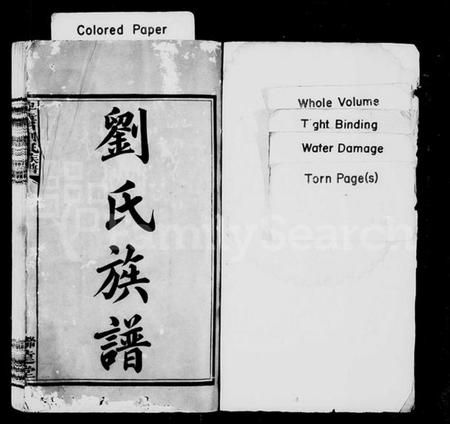 Colored Paper
劉氏族譜
Whole Volume
Tight Binding
Water Damage
Torn Page(s)
FamilySearch